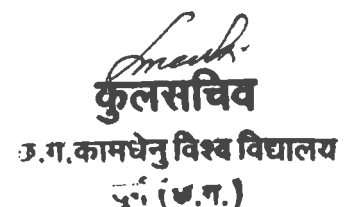 कुलसचिव
छ.ग.कामधेनु विश्व विद्यालय
दुर्ग (छ.ग.)